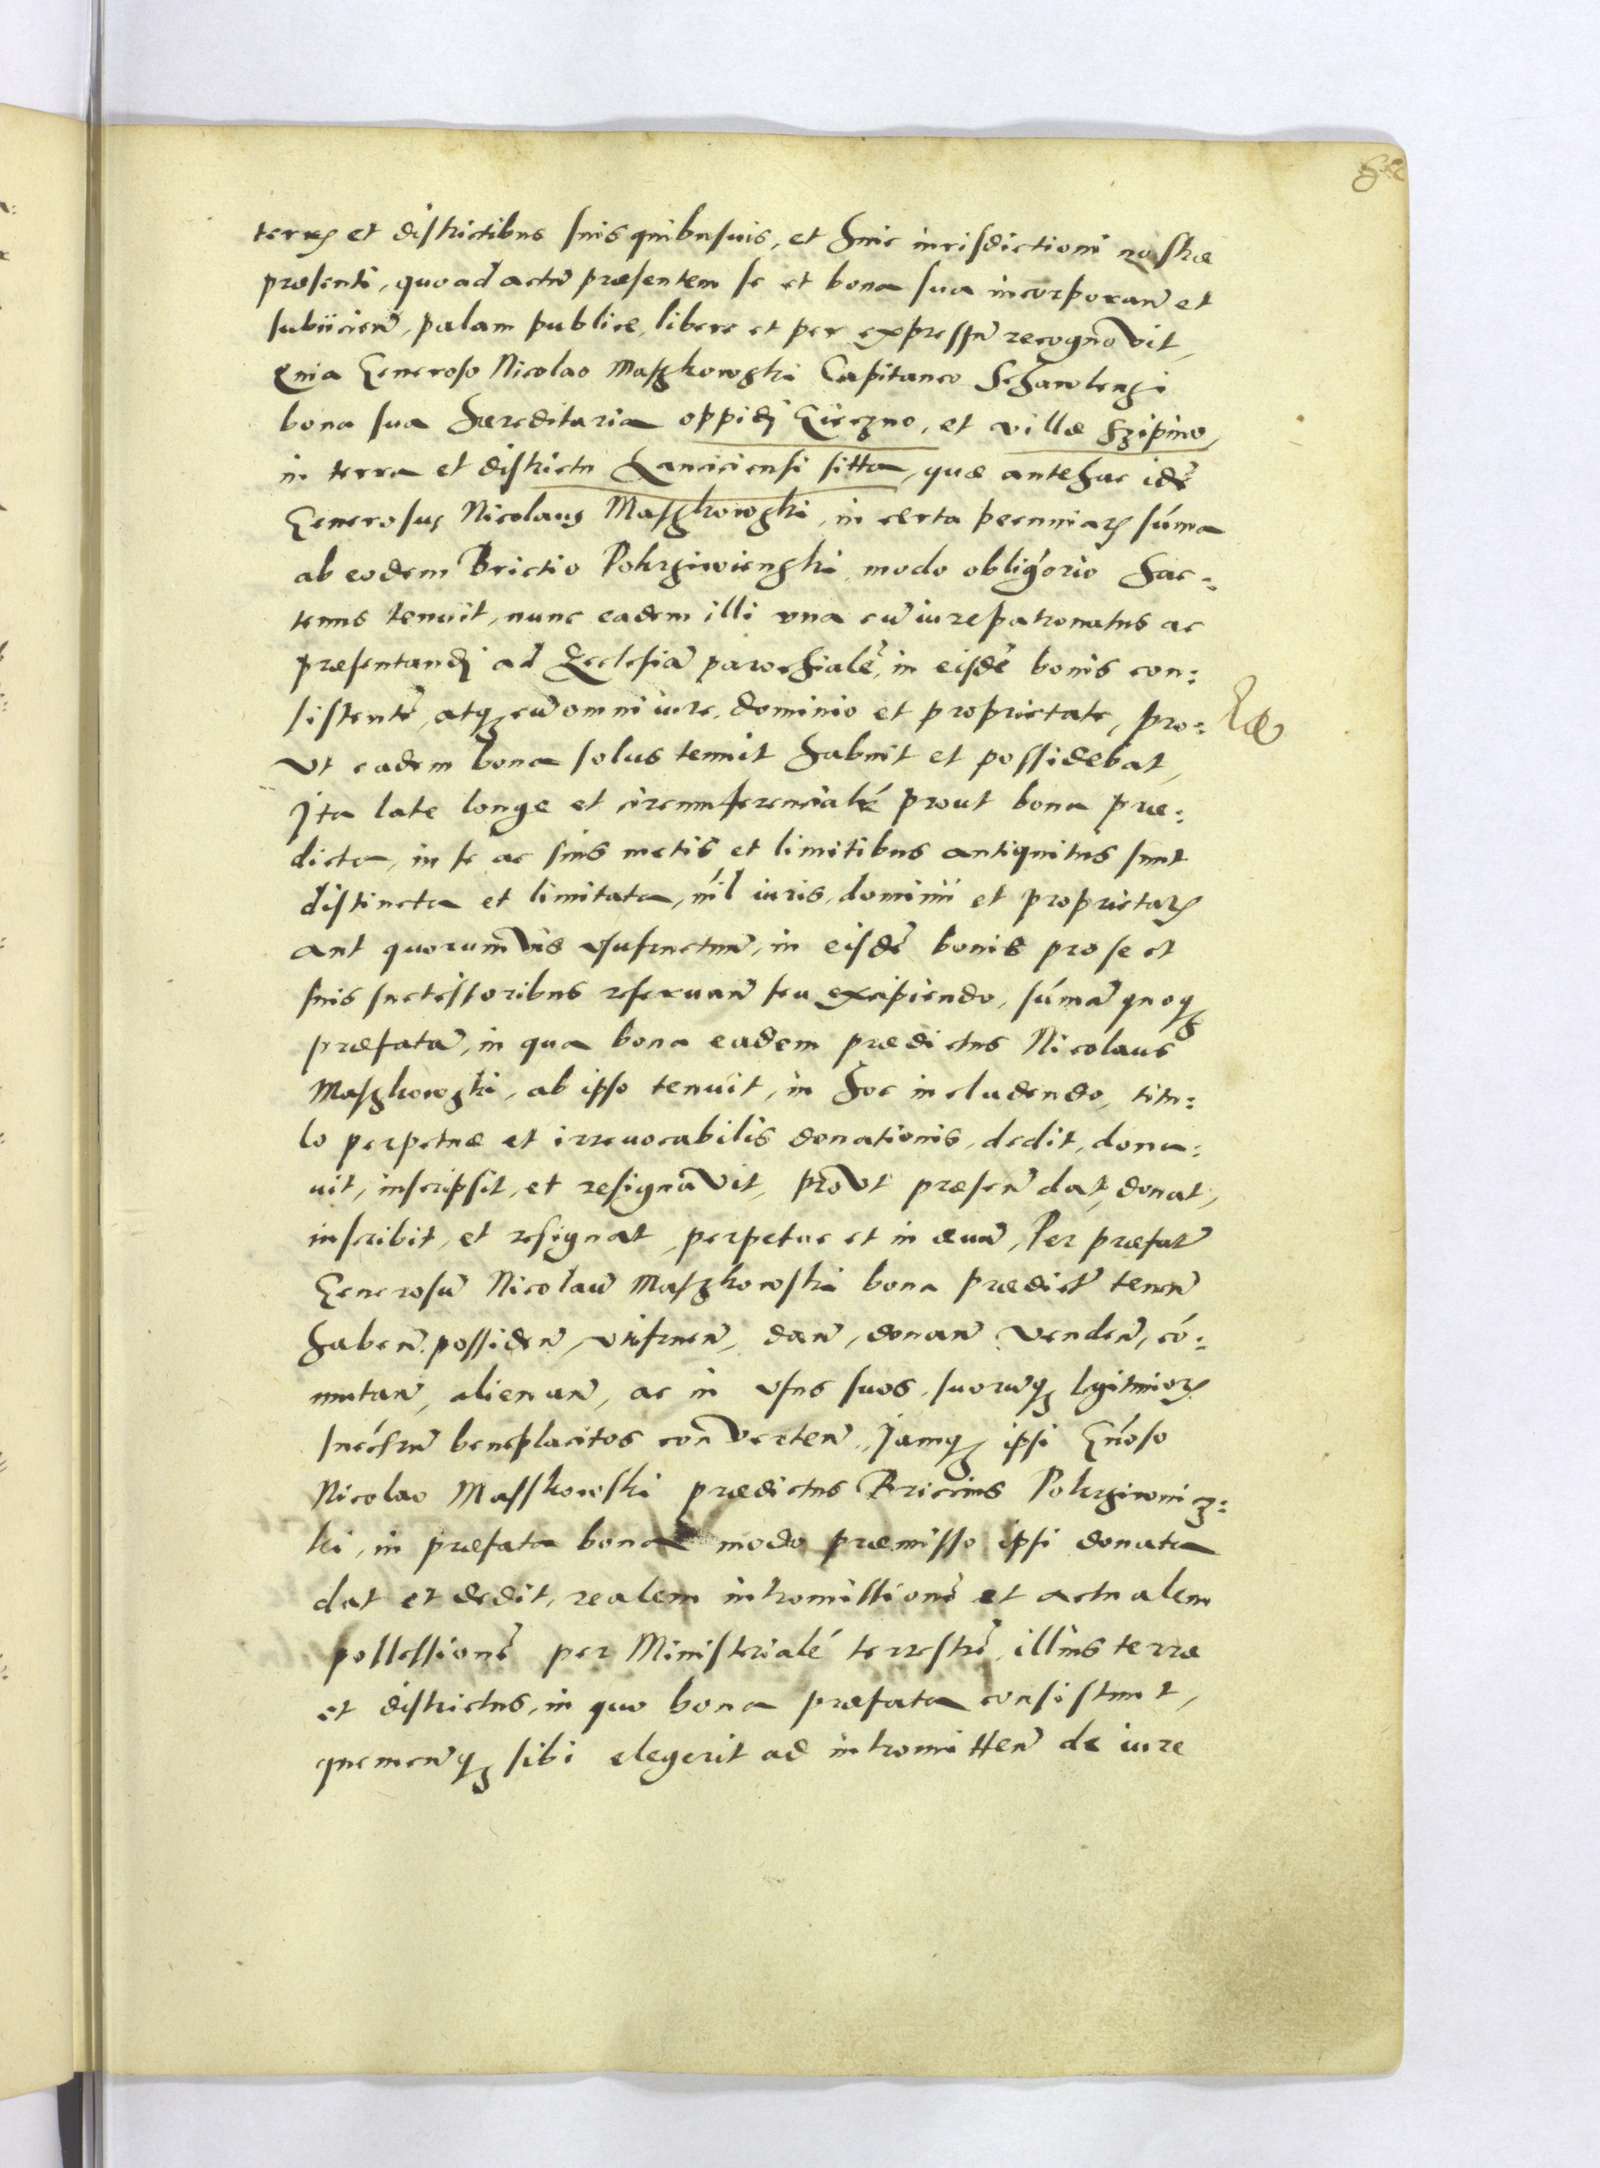 terrꝝ et districtibus suis quibusuis, et huic iurisdictioni nostræ
præsenti, quoad actũ præsentem se et bona sua incorporañ et
subiicieñ, palam publice, libere et per expressũ recognovit,
Quia Generoso Nicolao Maszkowski Capitaneo Schawlensi
bona sua hæreditaria oppidj Gieczno, et villæ Szipino,
in terra et districtu Lanciciensi sitta, quæ antehac idẽ
Generosus Nicolaus Maszkowski, in certa pecuniarꝝ súma
ab eodem Brictio Pokrziwienski modo oblig͠orio hac=
tenus tenuit, nunc eadem illi vna cũ iurepatronatus ac
præsentandj ad Ecclesiã parochialẽ, in eisdẽ bonis con=
sistentẽ, atqꝫ cũ omni iure, dominio et proprietate, pro=
vt eadem bona solus tenuit habuit et possidebat,
Ita late longe et circumferencialr̃ prout bona præ=
dicta, in se ac suis metis et limitibus antiquitus sunt
distincta et limitata, níl iuris, dominii et proprietatꝝ
aut quorumvis vsufructuũ, in eisdẽ bonis pro se et
suis successoribus reservañ seu excipiendo, súmã quoqꝫ
præfatã, in qua bona eadem prædictus Nicolaus
Maszkowski, ab ipso tenuit, in hoc includendo, titu=
lo perpetuæ et irreuocabilis donationis, dedit, dona=
uit, inscripsit, et resignavit, provt præseñ dat, donat,
inscribit, et resignat, perpetue et in æuũ, Per præfatũ
Generosũ Nicolaũ Maszkowski bona prædict̃ teneñ
habeñ possideñ, vtifrueñ, dañ, donañ vendeñ, có=
mutañ, alienañ, ac in vsus suos, suorũqꝫ legitimorꝝ
succ͠rũ beneplacitos converteñ, Iamqꝫ ipsi G͠noso
Nicolao Masskowski prædictus Briccius Pokrziwnicz=
ki, in præfata bona modo præmisso ipsi donata
dat et dedit, realem intromissionẽ et actualem
possessionẽ per Ministerialẽ terrestrẽ, illius terræ
et districtus, in quo bona præfata consistunt,
quemcũqꝫ sibi elegerit ad intromitteñ de iure